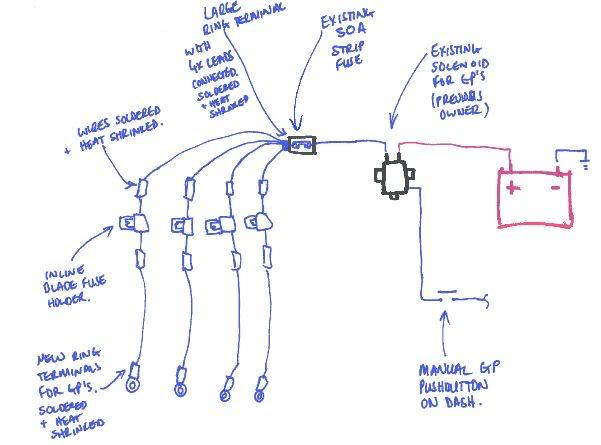 LARGE
RING TERMINAL
WITH
4X LEADS
CONNECTED.
SOLDERED
+ HEAT
SHRINKED
EXISTING
50A
STRIP
FUSE
EXISTING
SOLENOID
FOR GP'S
(PREVIOUS
OWNER)
WIRES SOLDERED
+ HEAT SHRINKED.
+ -
INLINE
BLADE FUSE
HOLDER.
NEW RING
TERMINALS
FOR GP'S.
SOLDERED
+ HEAT
SHRINKED
MANUAL GP
PUSHBUTTON
ON DASH.